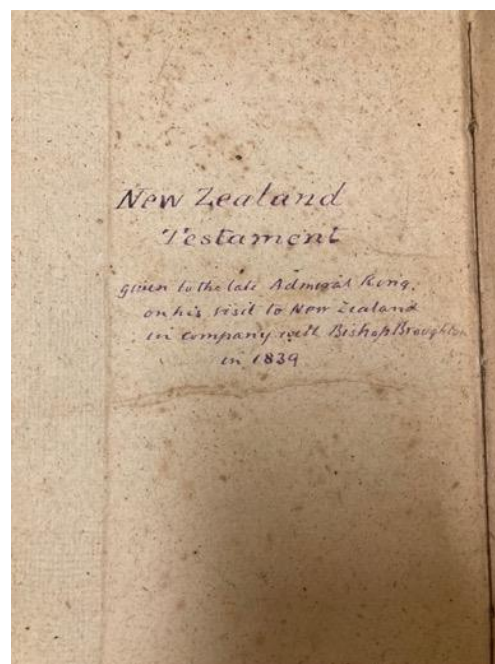 New Zealand
Testament
given to the late Admiral King.
on his visit to New Zealand
in company with Bishop Broughton
in 1839